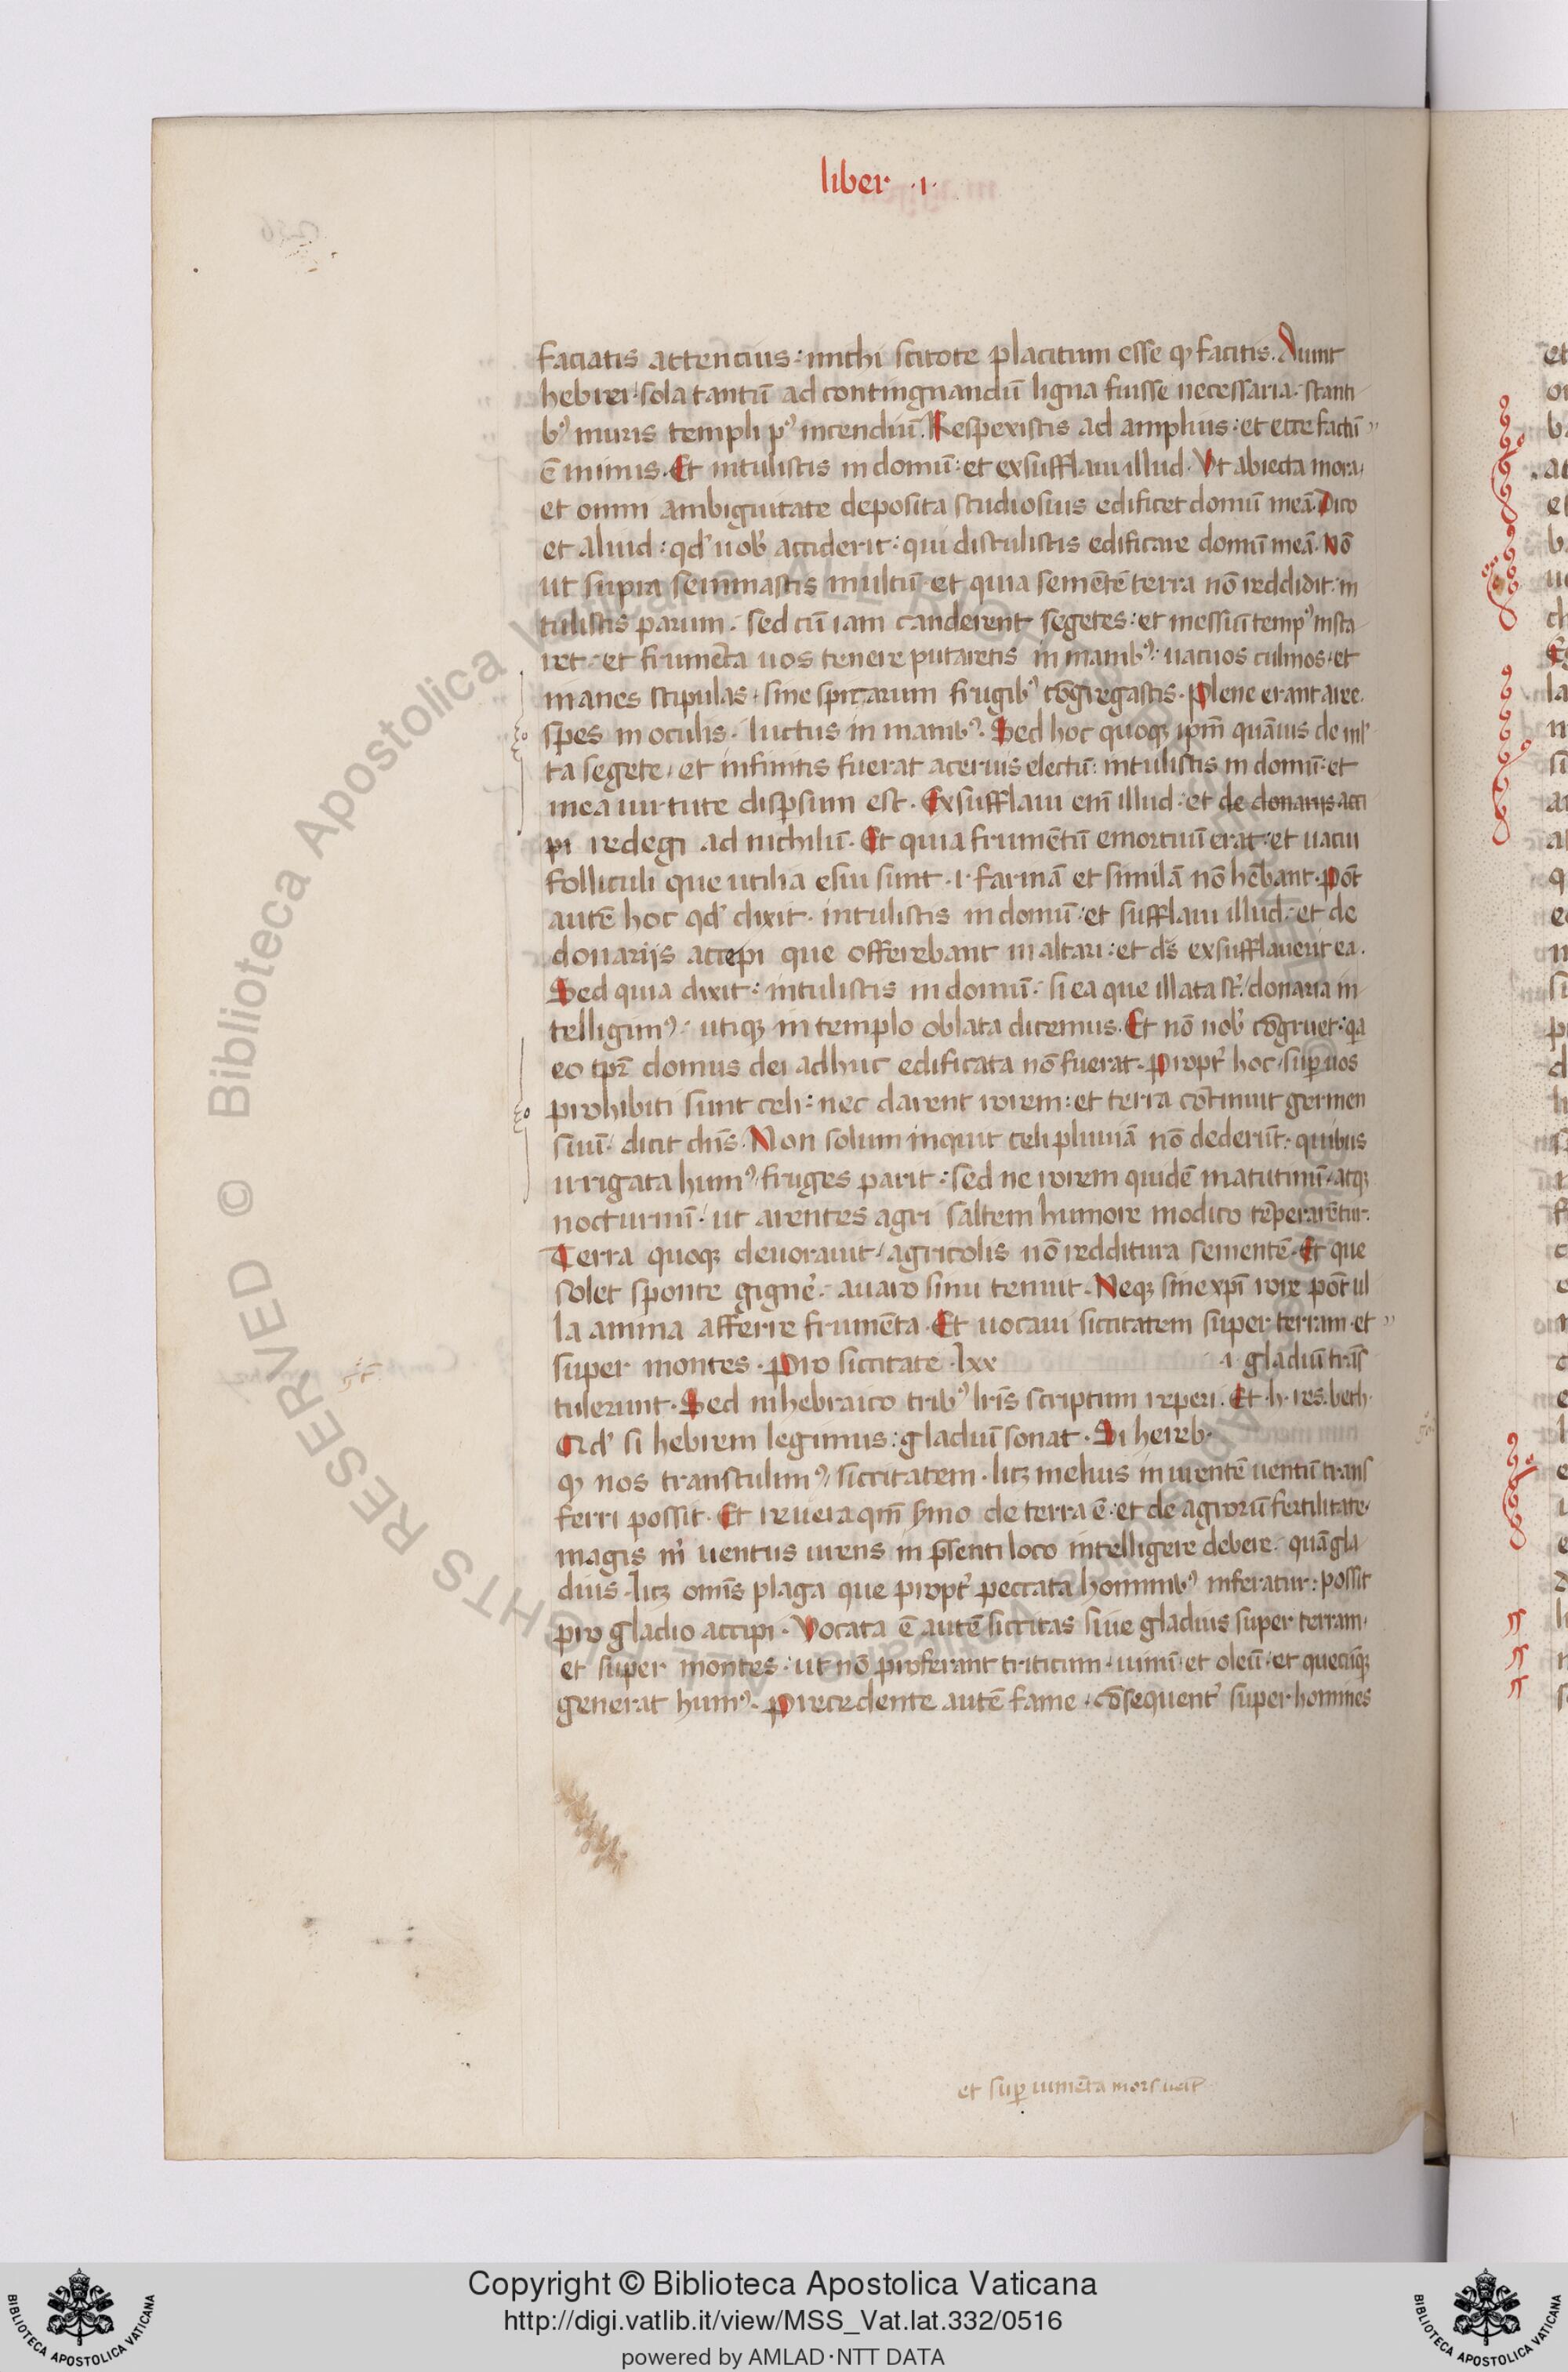 liber ·1·
faciatis attencius: michi scitote placitum esse qꝫ facitis. Aiunt
hebrei sola tantū ad contingnandū ligna fuisse necessaria. stanti
bꝰ muris templi pꝰ incendiū. Respexistis ad amplius: et ecce factū
ē minus. Et intulistis in domū: et exsufflaui illud. Vt abiecta mora,
et omni ambiguitate deposita studiosius edificet domū meā. Dico
et aliud: qd' uob' acciderit: qui distulistis edificare domū meā. Nō
ut supra seminastis multū et quia semētē terra nō reddidit. in
tulistis parum. sed cū iam canderent segetes: et messiū tempꝰ insta
ret: et frumēta uos tenere putaretis in manibꝰ: uacuos culmos et
inanes stipulas, sine spicarum frugibꝰ cōgregastis. Plene erant aree.
spes in oculis. luctus in manibꝰ. Sed hoc quoqꝫ ipm̄ quāuis de ml'
ta segete, et infinitis fuerat aceruis electū: intulistis in domū et
mea uirtute dispsum est. Exsufflaui em̄ illud: et de donariis acce
pi redegi ad nichilū. Et quia frumētū emortuū erat: et uacui
folliculi que utilia esui sunt. i. farinā et similā nō hēbant. Pōt
autē hoc qd' dixit. intulistis in domū: et sufflaui illud: et de
donarijs accepi que offerebant in altari: et ds̄ exsufflauerit ea.
Sed quia dixit: intulistis in domū. si ea que illata st̄. donaria in
telligimꝰ. utiqꝫ in templo oblata dicemus. Et nō uob' cōgruet. qa
eo tpr̄ domus dei adhuc edificata nō fuerat. Propt' hoc, sup uos
prohibiti sunt celi: nec darent rorem: et terra cōtinuit germen
suū. dicit dn̄s. Non solum inquit celi pluuiā nō dederūt. quibus
irrigata humꝰ, fruges parit: sed ne rorem quidē matutinū, atqꝫ
nocturnū. ut arentes agri saltem humore modico tēperarētur.
Terra quoqꝫ deuorauit, agricolis nō redditura sementē. Et que
solet sponte gigne'. auaro sinu tenuit. Neqꝫ sine xpī rore pōt ul
la anima afferre frumēta. Et uocaui siccitatem super terram et
super montes. Pro siccitate. lxx i. gladiū trās
tulerunt. Sed in hebraico tribꝰ lr̄is scriptum reperi. Et. h. res. beth.
Qd' si hebrem legimus: gladiū sonat. Si hereb.
qꝫ nos transtulimꝰ, siccitatem. licꝫ melius in urentē uentū trans
ferri possit. Et reuera qm̄ s̄mo de terra ē. et de agrorū fertilitate.
magis m' uentus urens in p̄senti loco intelligere debere. quā gla
dius. licꝫ omīs plaga que propt' peccata hominibꝰ inferatur: possit
pro gladio accipi. Vocata ē autē siccitas siue gladius super terram.
et super montes. ut nō proferant triticum. uinū et oleū. et quecūqꝫ
generat humꝰ. Precedente autē fame. cōsequent' super homines
et sup iumēta mors
Copyright © Biblioteca Apostolica Vaticana
http://digi.vatlib.it/view/MSS_Vat.lat.332/0516
powered by AMLAD·NTT DATA